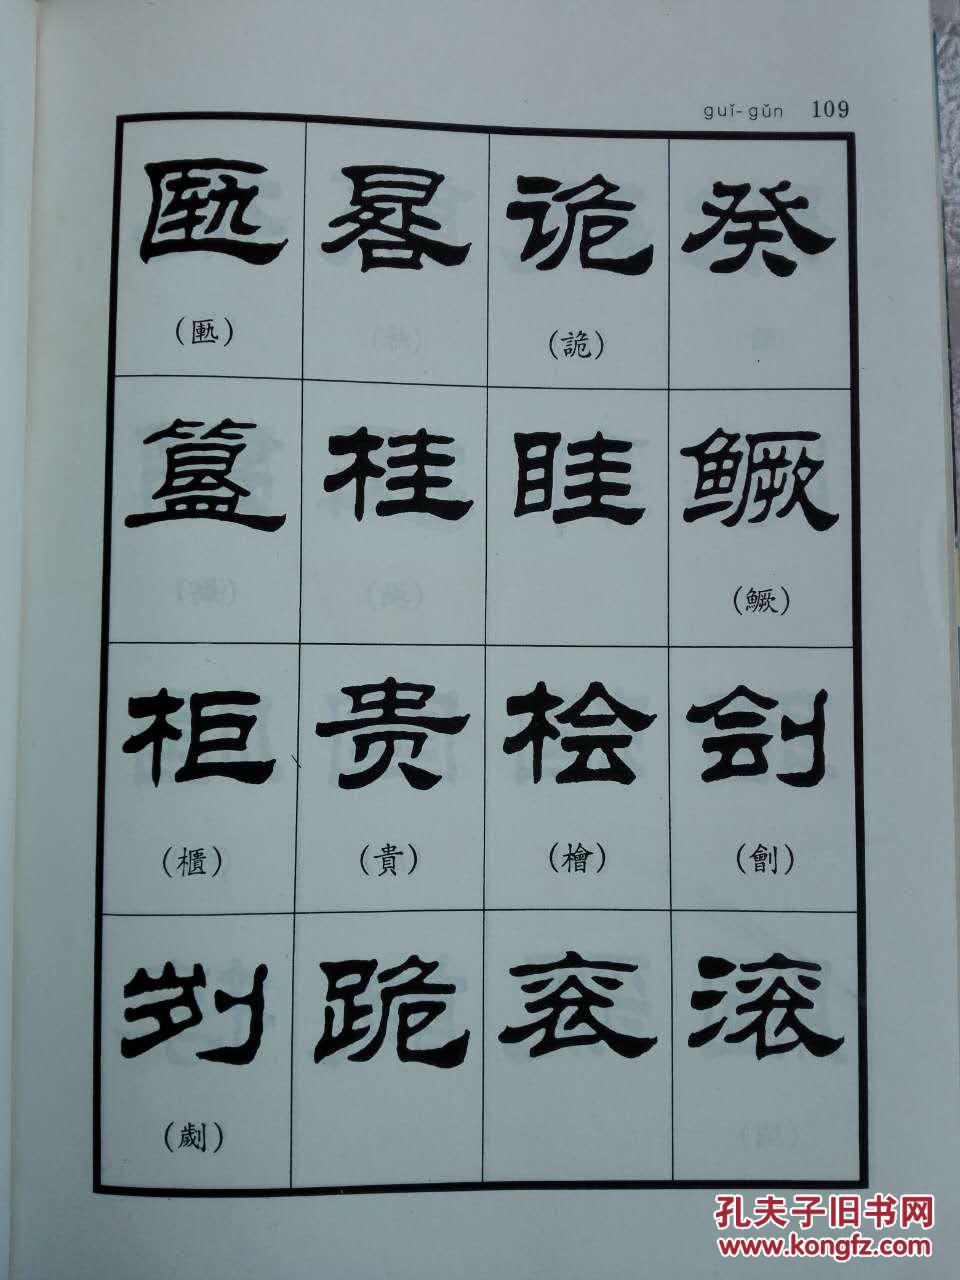 guǐ-gǔn 109
匦 晷 诡 癸
(匭) (詭)
簋 桂 眭 鳜
(鱖)
柜 贵 桧 刽
(櫃) (貴) (檜) (劊)
刿 跪 衮 滚
(劌)
孔夫子旧书网
www.kongfz.com